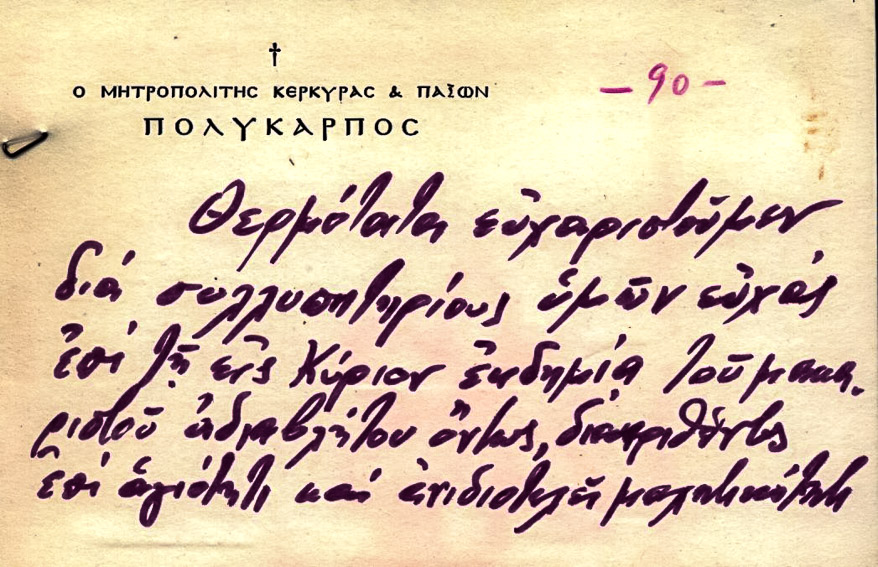 †
Ο ΜΗΤΡΟΠΟΛΙΤΗΣ ΚΕΡΚΥΡΑΣ & ΠΑΞΩΝ
ΠΟΛΥΚΑΡΠΟΣ
-90-
Θερμότατα εὐχαριστοῦμεν
διά συλλυπητηρίους ὑμῶν εὐχάς
ἐπί τῇ εἰς Κύριον ἐκδημίᾳ τοῦ μακα-
ριστοῦ ὄντως, διακριθέντος
ἐπί ἁγιότητι καί ἀνιδιοτελεῖ